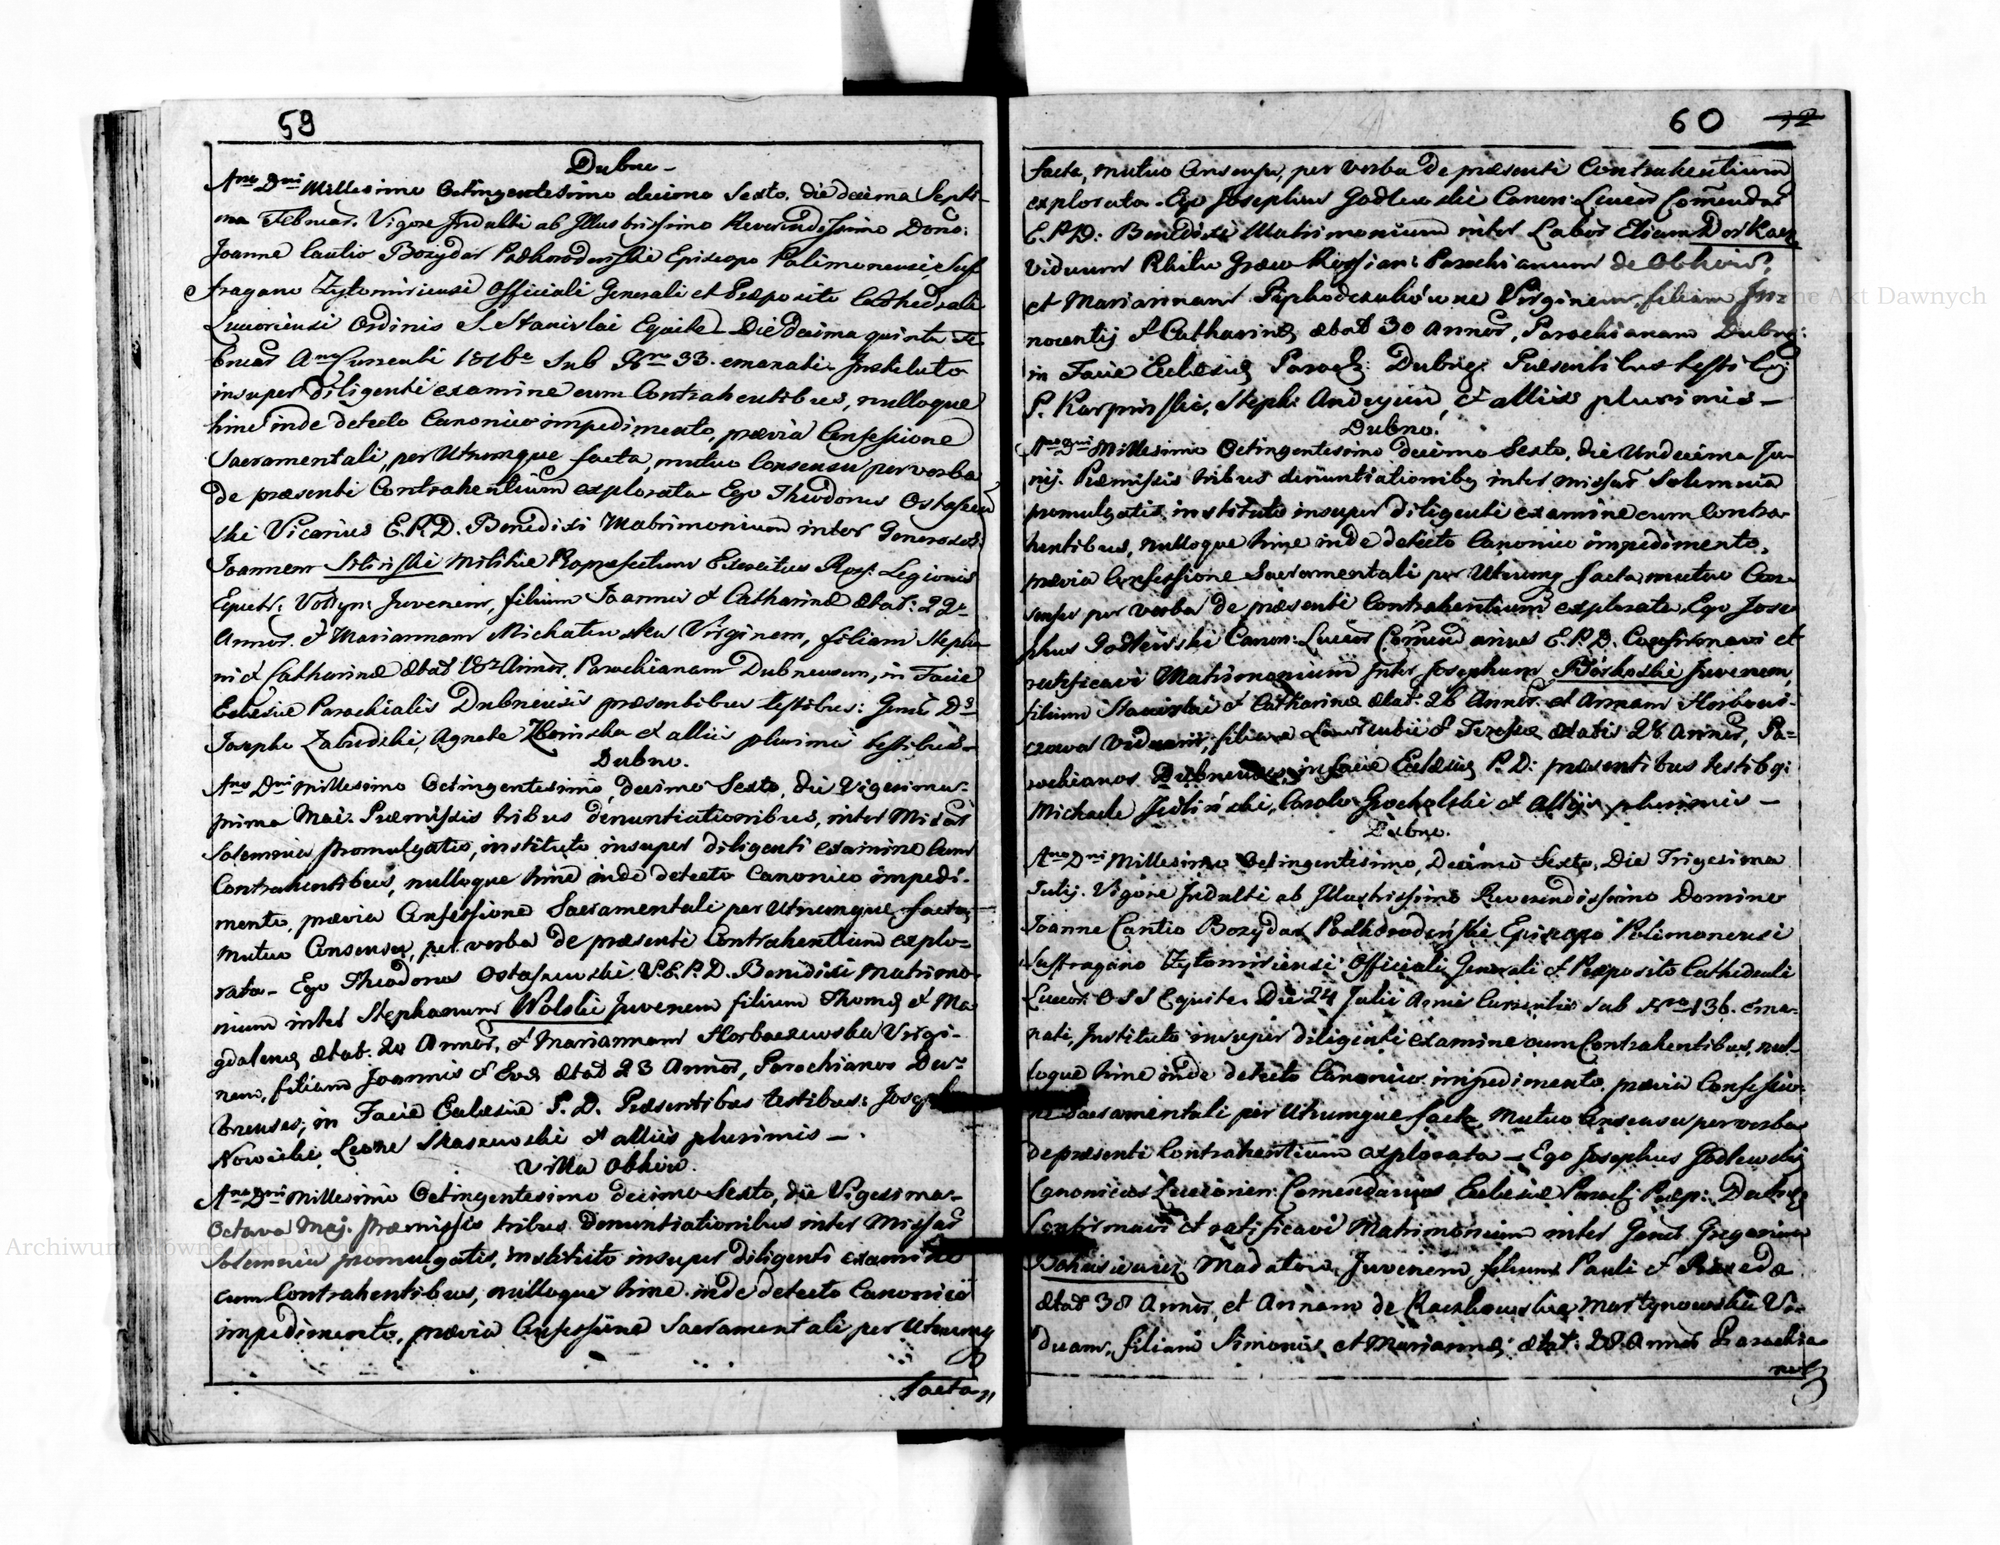 59
Dubno
Anno Dni Millesimo Octingentesimo decimo Sexto, die decima Septi-
ma Februar. Vigore Indulti ab Illustrissimo Reverendissimo Dono:
Joanne Cantio Bozydar Podhorodenski Episcopo Palimonensi Suf
fragano Zytomiriensi Officiali Generali et Præposito Cathedrali
Luceoriensi Ordinis S. Stanislai Equite Die decima quinta Fe
bruar Anni Currenti 1816 Sub Nro 33. emanati Instituto
insuper diligenti examine cum Contrahentibus, nulloque
hinc inde detecto Canonico impedimento, prævia Confessione
Sacramentali, per Utrumque facta, mutuo Consensu per verba
de præsenti Contrahentium explorata Ego Theodorus Ostaszew
ski Vicarius E.P.D. Benedixi Matrimonium inter Generosos:
Joannem Militiæ Exercitus Ross: Legionis
Equitr: Volyn: Juvenem, filium Joannis et Catharinæ ætat: 22
Annor. et Mariannam Virginem, filiam Stepha
ni et Catharinæ ætat 18 Annor, Parochianam Dubnensem, in Facie
Eclesiæ Parochialis Dubnensis præsentibus testibus: Genis D
Josepho Agneta et alliis plurimis testibus
Dubno.
Ano Dni Millesimo Octingentesimo, decimo Sexto, die Vigesima-
prima Mai. Præmissis tribus denuntiationibus, inter Missar
Solemnia promulgatis, instituto insuper diligenti examine cum
Contrahentibus, nulloque hinc inde detecto Canonico impedi-
mento, prævia Confessione Sacramentali per Utrumque facta,
mutuo Consensu, per verba de præsenti Contrahentium explo-
rata- Ego Theodorus Ostaszewski V.E.P.D. Benedixi Matrimo-
nium inter Stephanum Wolski Juvenem filium Thomæ et Ma
gdalenæ ætat. 20 Annor, et Mariannam Horbaczewska Virgi-
nem, filiam Joannis et Evæ ætat 23 Annor, Parochianos Du-
bnenses, in Facie Eclesiæ P. D. Præsentibus testibus: Josepho
Nowicki, Leone et alliis plurimis -.
Villa Obhow.
Ano Dni Millesimo Octingentesimo decimo Sexto, die Vigesima-
Octava Maj. Præmissis tribus denuntiationibus inter Missar
Solemnia promulgatis, instituto insuper diligenti examine
cum Contrahentibus, nulloque hinc inde detecto Canonico
impedimento, prævia Confessione Sacramentali per Utrumq
facta,
60
facta, mutuo Consensu, per verba de præsenti Contrahentium
explorata- Ego Josephus Godlewski Canon: Luceor Comendar
E.P.D: Benedixi Matrimonium inter Labor
Viduum Ritu Græco Parochianum de Obhow,
et Mariannam Virginem, filiam In-
nocentij et Catharinæ ætat 30 Annor, Parochianam Dubn:
in Facie Eclesiæ Paroch: Dubnæ. Præsentibus testibq:
P. Karpinski, Steph: et alliis plurimis -
Dubno.
Ano Dni Millesimo Octingentesimo decimo Sexto, die Undecima Ju-
nij. Præmissis tribus denuntiationibq inter missar Solemnia
promulgatis instituto insuper diligenti examine cum Contra-
hentibus, nulloque hinc inde detecto Canonico impedimento,
prævia Confessione Sacramentali per Utrumq facta, mutuo Con-
sensu per verba de præsenti Contrahentium explorata, Ego Jose
phus Godlewski Canon: Luceor Comendarius E.P.D. Confirmavi et
ratificavi Matrimonium inter Josephum Juvenem,
filium Stanislai et Catharinæ ætat. 26 Annor. et Annam Horbow-
czowa Viduam, filiam Laurentii et Teresiæ ætatis 28 Annor, Pa-
rochianos Dubnenses, in facie Eclesiæ P. D: præsentibus testibq:
Michaele Carolo Grocholski et Allijs plurimis -
Dubno.
Ano Dni Millesimo Octingentesimo, Decimo Sexto, Die Trigesima
Julij. Vigore Indulti ab Illustrissimo Reverendissimo Domino
Joanne Cantio Bozydar Podhorodenski Episcopo Palimonensi
Suffragano Zytomiriensi Officiali Generali et Præposito Cathedrali
Luceor: O S S Equite. Die 24 Julii Anni Currentis Sub Nro 136. ema-
nati, Instituto insuper diligenti examine cum Contrahentibus, nul-
loque hinc inde detecto Canonico impedimento, prævia Confessio
ne Sacramentali per Utrumque facta, mutuo Consensu per verba
de præsenti Contrahentium explorata - Ego Josephus Godlewski
Canonicus Luceorien: Comendarius Eclesiæ Paroch: Præp: Dubnæ
Confirmavi et ratificavi Matrimonium inter Geners Gregorium
Juvenem, filium Pauli et
ætat 38 Annor, et Annam de Martynowska Vi-
duam, filiam Simonis et Mariannæ ætat: 28 Annor Parochia
nos
Archiwum Główne Akt Dawnych